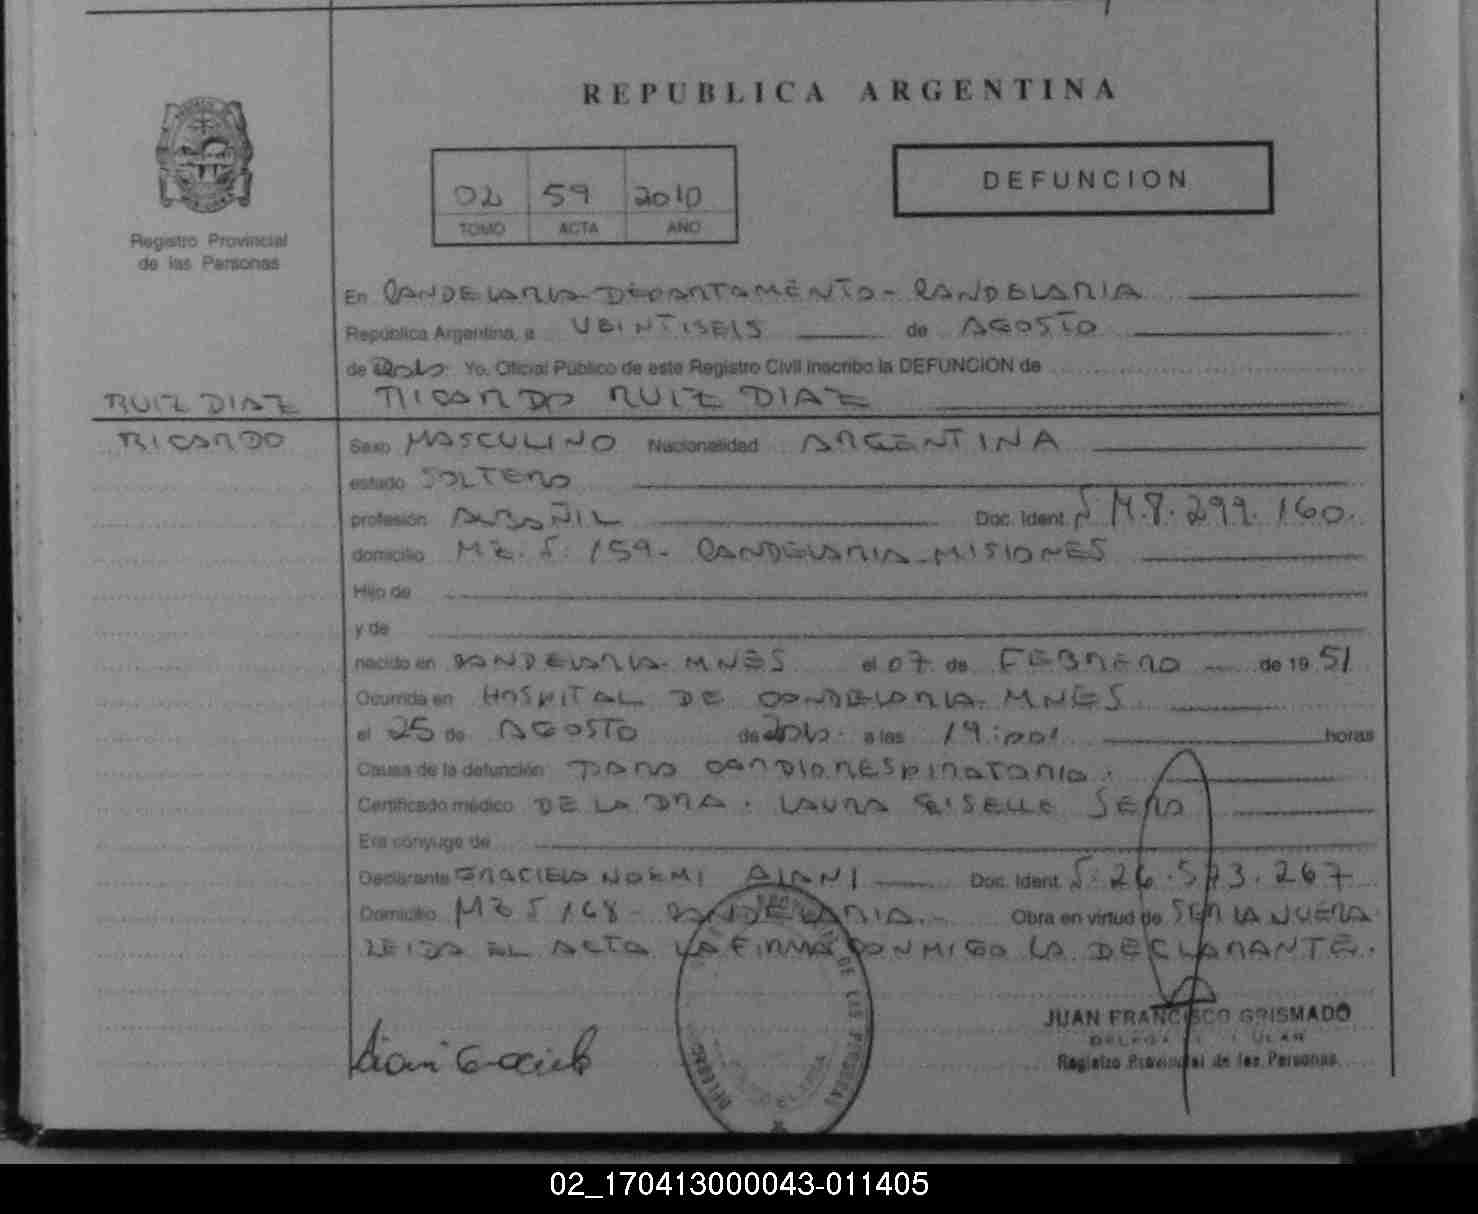 REPUBLICA ARGENTINA
02 59 2010
TOMO ACTA AÑO
DEFUNCION
Registro Provincial
de las Personas
En CANDELARIA DEPARTAMENTO - CANDELARIA
República Argentina, a VEINTISEIS de AGOSTO
de 2010 Yo, Oficial Público de este Registro Civil inscribo la DEFUNCION de
RUIZ DIAZ RICARDO RUIZ DIAZ
RICARDO Sexo MASCULINO Nacionalidad ARGENTINA
estado SOLTERO
profesión ALBAÑIL Doc. Ident. M.8.299.160.
domicilio MZ. S. 159 - CANDELARIA - MISIONES
Hijo de
y de
nacido en CANDELARIA - MNES el 07 de FEBRERO de 19 51
Ocurrida en HOSPITAL DE CANDELARIA - MNES
el 25 de AGOSTO de 2010 a las 19: horas
Causa de la defunción PARO CARDIORESPIRATORIO.
Certificado médico DE LA DRA. LAURA GISELLE
Era cónyuge de
Declarante GRACIELA NOEMI Doc. Ident. 26.573.267
Domicilio MZ S 168 - CANDELARIA. - Obra en virtud de SER LA NUERA
LEIDA EL ACTA LA FIRMA CONMIGO LA DECLARANTE.
JUAN FRANCISCO GRISMADO
Registro Provincial de las Personas
02_170413000043-011405